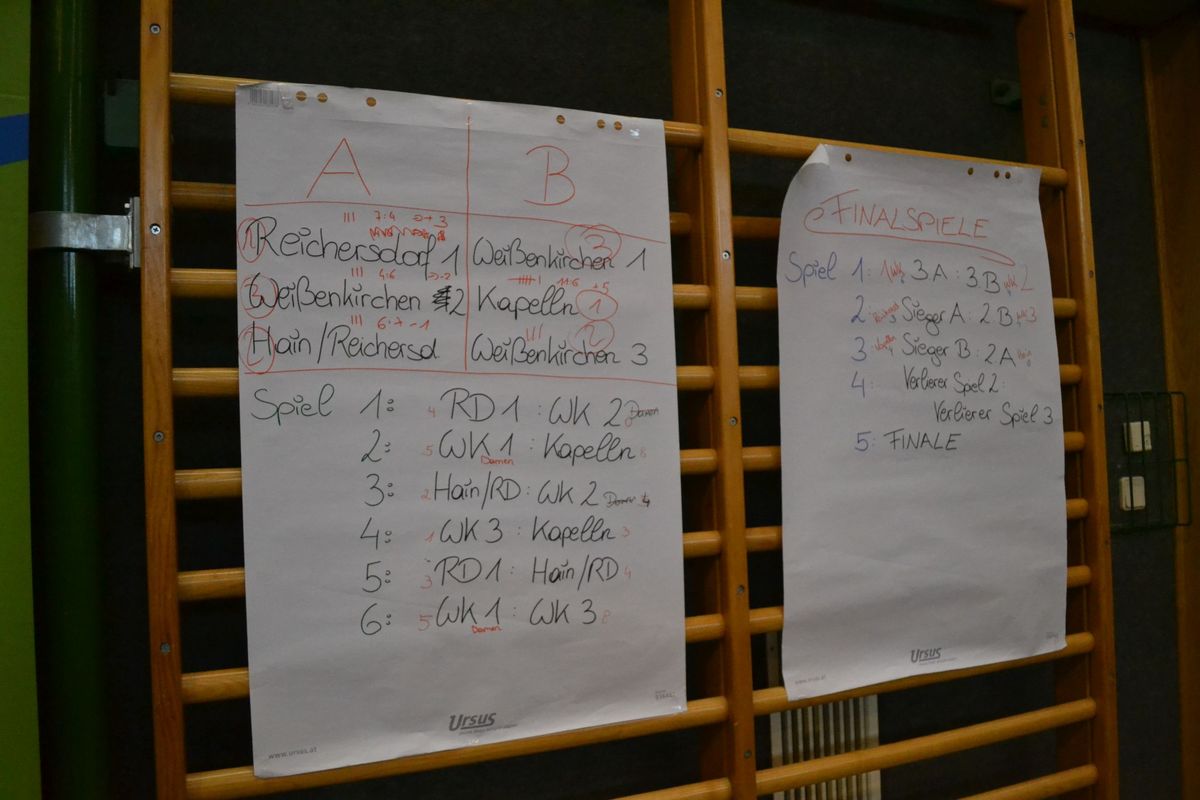 A B
III 7:4 3
1 Reichersdorf 1 Weißenkirchen 1 3
III 4:6 -2 11:6 +5
3 Weißenkirchen 2 Kapelln 1
III 6:7 -1 III 2
2 Hain/Reichersd Weißenkirchen 3
Spiel 1: 4 RD 1 : WK 2 Damen
2: 5 WK 1 : Kapelln 8
Damen
3: 2 Hain/RD : WK 2 Damen 4
4: 1 WK 3 : Kapelln 3
5: 3 RD 1 : Hain/RD 4
6: 5 WK 1 : WK 3 8
Damen
Ursus
www.ursus.at
FINALSPIELE
Spiel 1: 1 WK 3 A : 3 B WK 2
2 Sieger A : 2 B 3
3 Kapelln Sieger B : 2 A Hain
4: Verlierer Spiel 2:
Verlierer Spiel 3
5: FINALE
Ursus
www.ursus.at